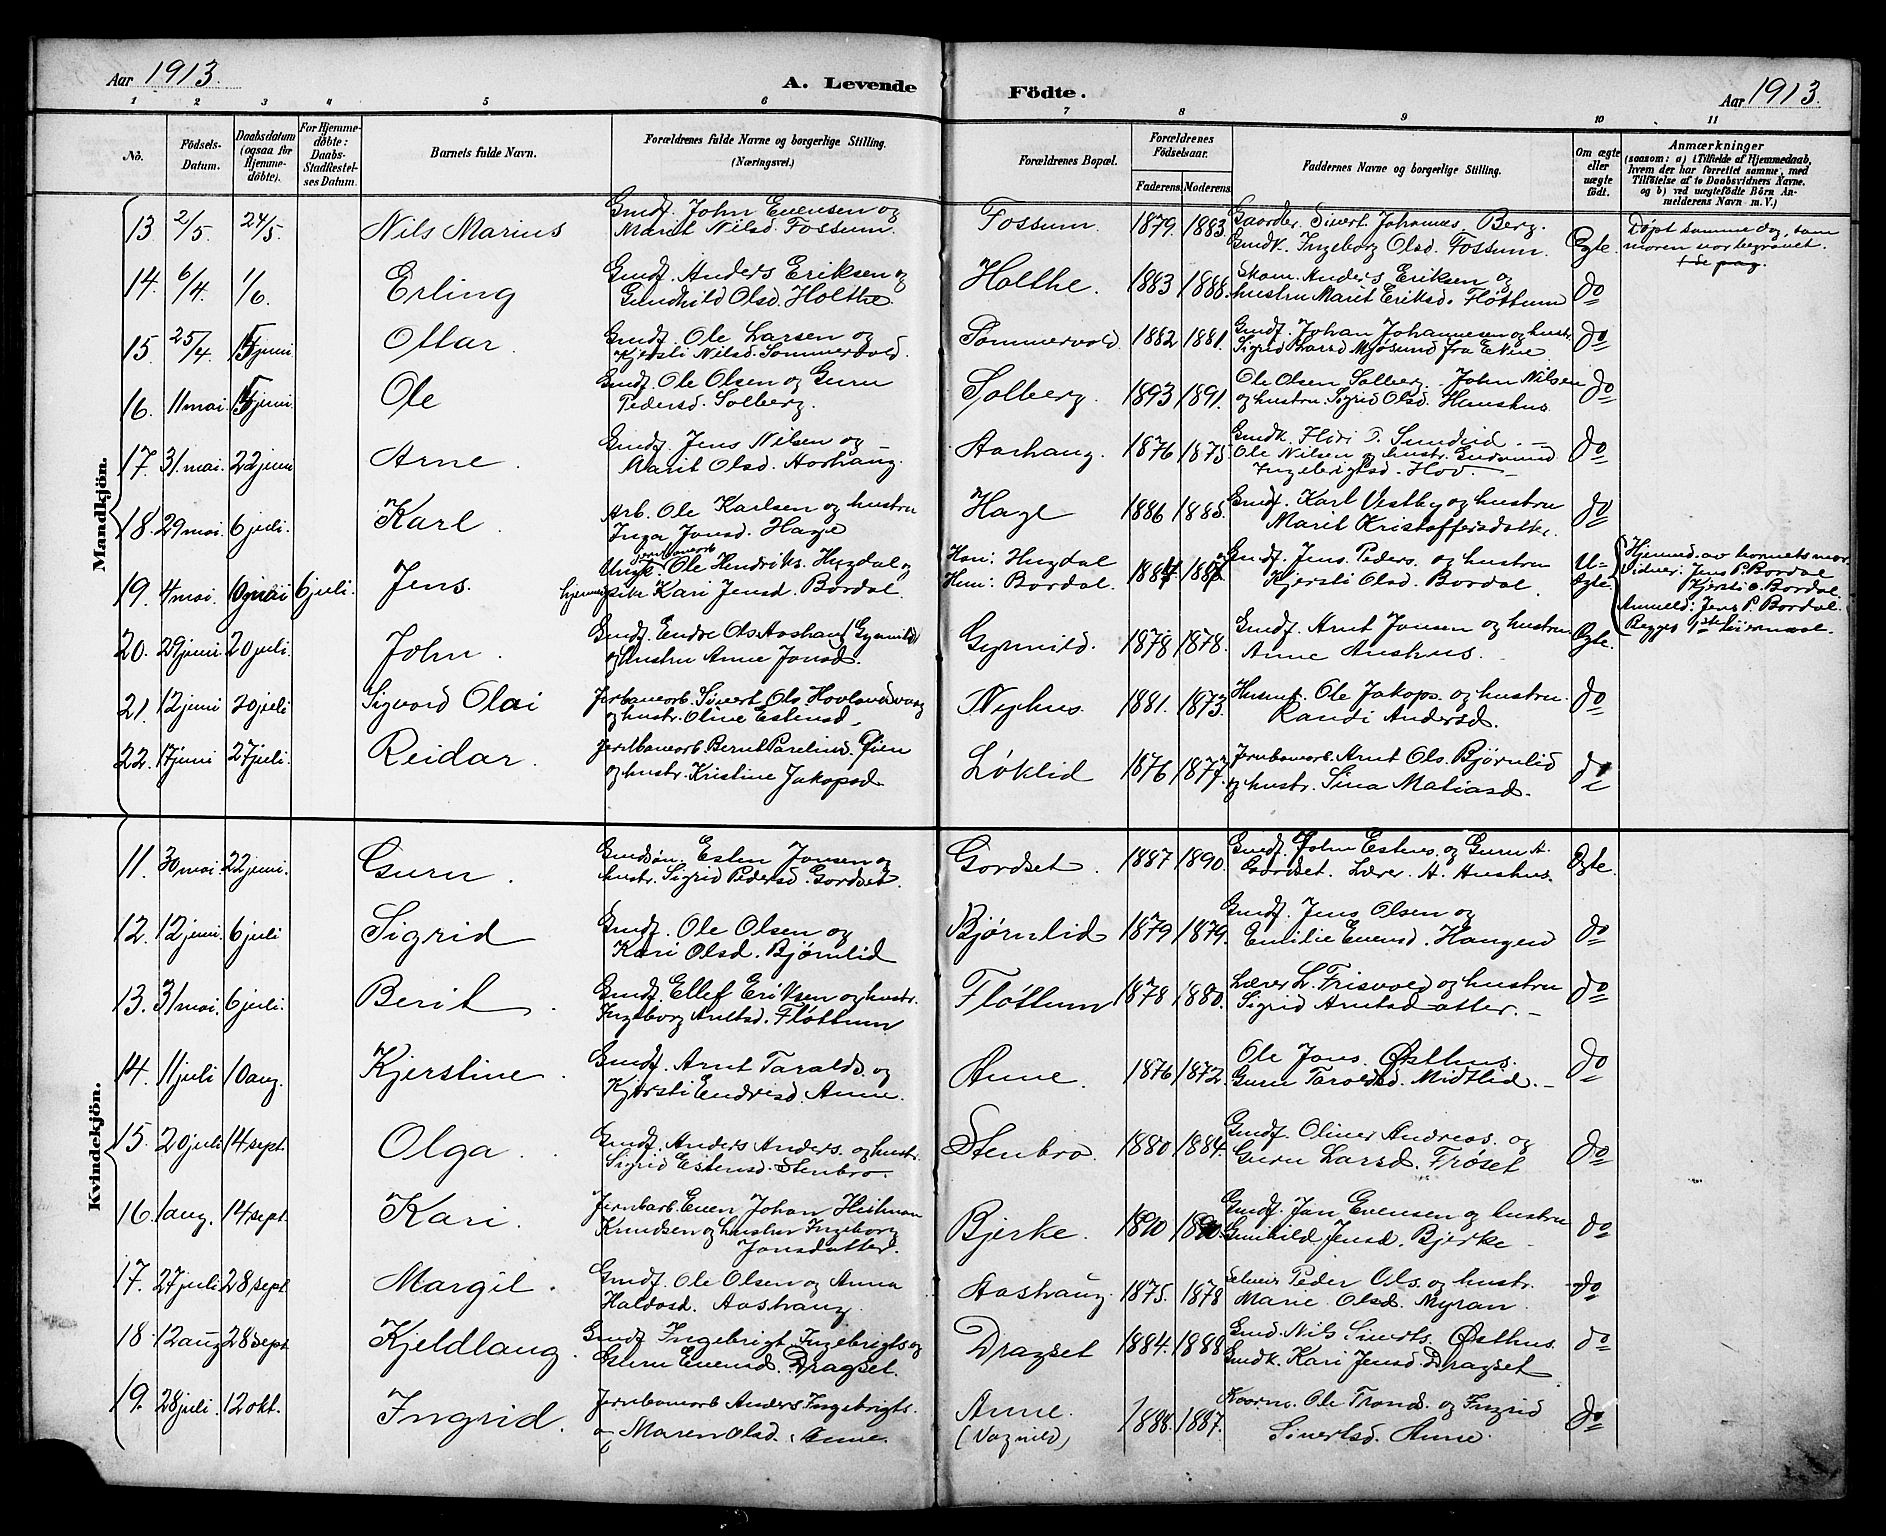 Aar 1913. A. Levende Födte. Aar 1913.
1 2 3 4 5 6 7 8 9 10 11
No. Födsels-Datum. Daabsdatum (ogsaa for Hjemmedöbte). For Hjemmedöbte: Daabs-Stadfæstelses Datum. Barnets fulde Navn. Forældrenes fulde Navne og borgerlige Stilling. (Næringsvei.) Forældrenes Bopæl. Forældrenes Födselsaar. Faderens. Moderens. Faddernes Navne og borgerlige Stilling. Om ægte eller uægte födt. Anmærkninger (saasom: a) i Tilfælde af Hjemmedaab, hvem der har forrettet samme, med Tilföielse af to Daabsvidners Navne, og b) ved uægtefödte Börn Anmelderens Navn m. V.)
Mandkjön.
13 2/5. 24/5. Nils Marius Gmdf. John Evensen og Marit Nilsd. Fossum. Fossum. 1879. 1883. Gaardbr. Sivert Johannes Berg. Gmdk. Ingeborg Olsd. Fossum. Egte. Döpt samme dag, som moren var begravet.
14. 6/4. 1/6. Erling Gmdf. Anders Eriksen og Gundhild Olsd. Holthe Holthe. 1883 1888. Skom. Anders Eriksen og hustru Marit Eriksd. Fløttum do
15. 25/4. 15 juni Ottar. Gmdf. Ole Larsen og Kjersti Nilsd. Sommervold. Sommervold. 1882 1881. Gmdf. Johan Johannesen og hustr. Sigrid Larsd Mjøsund fra Ekne do
16. 11 mai 15 juni. Ole Gmdf. Ole Olsen og Guru Pedersd. Solberg. Solberg. 1893 1891. Ole Olsen Solberg. John Nilsen og hustru Sigrid Olsd. Hanshus. do
17. 31 mai. 22 juni Arne. Gmdf. Jens Nilsen og Marit Olsd. Aashaug. Aashaug. 1876 1875 Gmdk. Ole Nilsen og hustr. Gudrund Ingebrigtsd. Hov. do
18. 29 mai. 6 juli. Karl. Arb. Ole Karlsen og hustru Inga Jonsd. Hage Hage 1886 1885. Gmdf. Karl Vestby og hustru Marit Kristoffersdatter. do
19. 4 mai. 10 mai 6 juli. Jens. Ungk. Ole Hendriks. Hugdal og pike Kari Jensd. Bordal. Han: Hugdal Hun: Bordal. 1884 Gmdf. Jens Peders. og hustru Kjersti Olsd. Bordal. U-Egte Hjemmed. av barnets mor Vidner: Jens P. Bordal Kjersti O. Bordal. Anmeld: Jens P. Bordal. Begges 1ste leiermaal.
20. 29 juni 20 juli. John. Gmdf. Endre Ols. Aashaug (Gynnild) og hustru Anne Jonsd. Gynnild. 1878 1878. Gmdf. Arnt Jonsen og hustru Anne Aushus. Egte.
21. 12 juni 20 juli Sigvard Olai Jernbanearb. Sivert Ols. og hustr. Oline Estensd. Nyhus. 1881. 1873. Husmf. Ole Jakops. og hustru Randi Andersd. do
22. 17 juni 27 juli. Reidar. Jernbanearb. Bernt Parelius. Øien og hustr. Kristine Jakopsd. Løklid 1876 1877. Jernbanearb. Arnt Ols. Bjørnlid og hustr. Sina Matiasd. do
Kvindekjön.
11. 30 mai. 22 juni. Guru. Gmdsøn. Esten Jonsen og hustr. Sigrid Pedersd. Gordset. Gordset. 1887 1890. Gmdf. John Estens. og Guru A. Gordset. Lærer A. Aushus. Egte.
12. 12 juni. 6 juli Sigrid Gmdf. Ole Olsen og Kari Olsd. Bjørnlid Bjørnlid 1879 1879. Gmdf. Jens Olsen og Emilie Evensd. Haugen do
13. 31 mai. 6 juli. Berit. Gmdf. Ellef Eriksen og hustr. Ingeborg Arntsd. Fløttum Fløttum 1878 1880. Lærer L. Frisvold og hustru Sigrid Arntsdatter. do
14. 11 juli 10 aug. Kjerstine. Gmdf. Arnt Taralds. og Kjersti Endresd. Aune. Aune. 1876 1872. Ole Jons. Østhus. Guru Taroldsd. Midtlid. do
15. 20 juli 14 sept. Olga. Gmdf. Anders Anders. og hustr. Sigrid Estensd. Stenbro. Stenbro. 1880 1884. Gmdf. Oliver Andreas. og Guru Larsd. Trøset do
16. 1 aug. 14 sept. Kari. Jernbarb. Even Johan Heitman Knudsen og hustru Ingeborg Jonsdatter. Bjerke. 1890 1890. Gmdf. Jon Evensen og hustru Gunhild Jensd. Bjerke do
17. 27 juli 28 sept Margit. Gmdf. Ole Olsen og Anna Haldosd. Aashaug. Aashaug. 1875. 1878 Peder Ols. og hustr. Marie Olsd. Myran. do
18. 12 aug 28 sept Kjeldlaug. Gmdf. Ingebrigt Ingebrigts. og Guru Evensd. Dragset. Dragset 1884. 1888 Gmd. Nils Siverts. Østhus. Gmdk. Kari Jensd. Dragset do
19. 28 juli. 12 okt. Ingrid. Jernbanearb Anders Ingebrigts. og Maren Olsd. Aune. Aune. (Vognild) 1888. 1887. Ole Tronds. og Ingrid Sivertsd. Aune. do